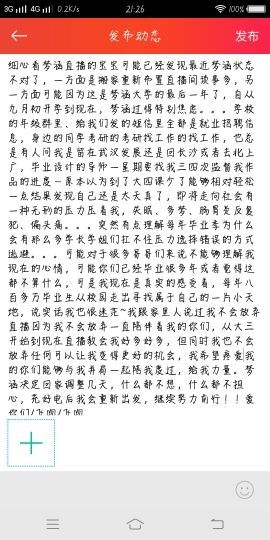 3G 4G 0.2K/s 21:26 100%
发布动态 发布
细心看梦涵直播的宝宝可能已经发现最近梦涵状态
不对了，一方面是搬家重新布置直播间琐事多，另
一方面可能因为这是梦涵大学的最后一年了，自从
九月初开学到现在，梦涵过得特别焦虑。。。学校
的年级群里、给我们发的短信里全都是就业招聘信
息，身边的同学考研的考研找工作的找工作，也总
是有人问我是留在武汉发展还是回长沙或者去北上
广，毕业设计的导师一星期要找我三四次监督我作
品的进度—原本以为到了大四课少了能够相对轻松
一点结果发现自己还是太天真了，即将走向社会有
一种无形的压力压着我，失眠、多梦、肠胃炎反复
犯、偏头痛。。。突然有点理解每年毕业季为什么
会有那么多学长学姐们扛不住压力选择错误的方式
逃避。。。可能对于很多哥哥们来说不能够理解我
现在的心情，可能你们已经毕业很多年或者觉得这
都不算什么，可是我现在是真实的感受着，每年八
百多万毕业生从校园走出寻找属于自己的一片小天
地，说实话我也很迷茫~我跟家里人说过我不会放弃
直播因为我不会放弃一直陪伴着我的你们，从大三
开始到现在直播教会我好多好多，但同时我也不会
放弃任何可以让我变得更好的机会，我希望喜爱我
的你们能够与我并肩一起陪我度过，给我力量。梦
涵决定回家调整几天，什么都不想，什么都不担
心，充好电后我会重新出发，继续努力前行！！爱
你们/飞吻/飞吻